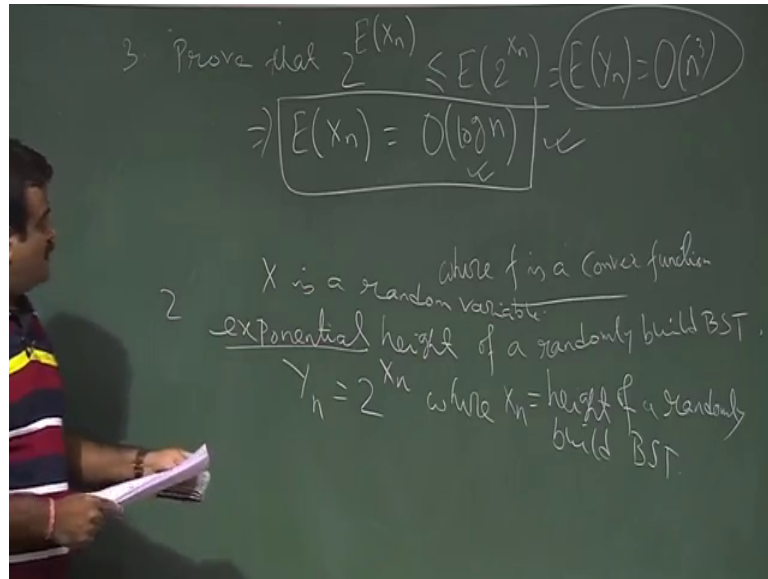 3. Prove that 2^{E(X_n)} ≤ E(2^{X_n}) = E(Y_n) = O(n^3)
⇒ E(X_n) = O(log n) ✓
where f is a convex function
X is a random variable.
2 exponential height of a randomly build BST.
Y_n = 2^{X_n} where X_n = height of a randomly
build BST.